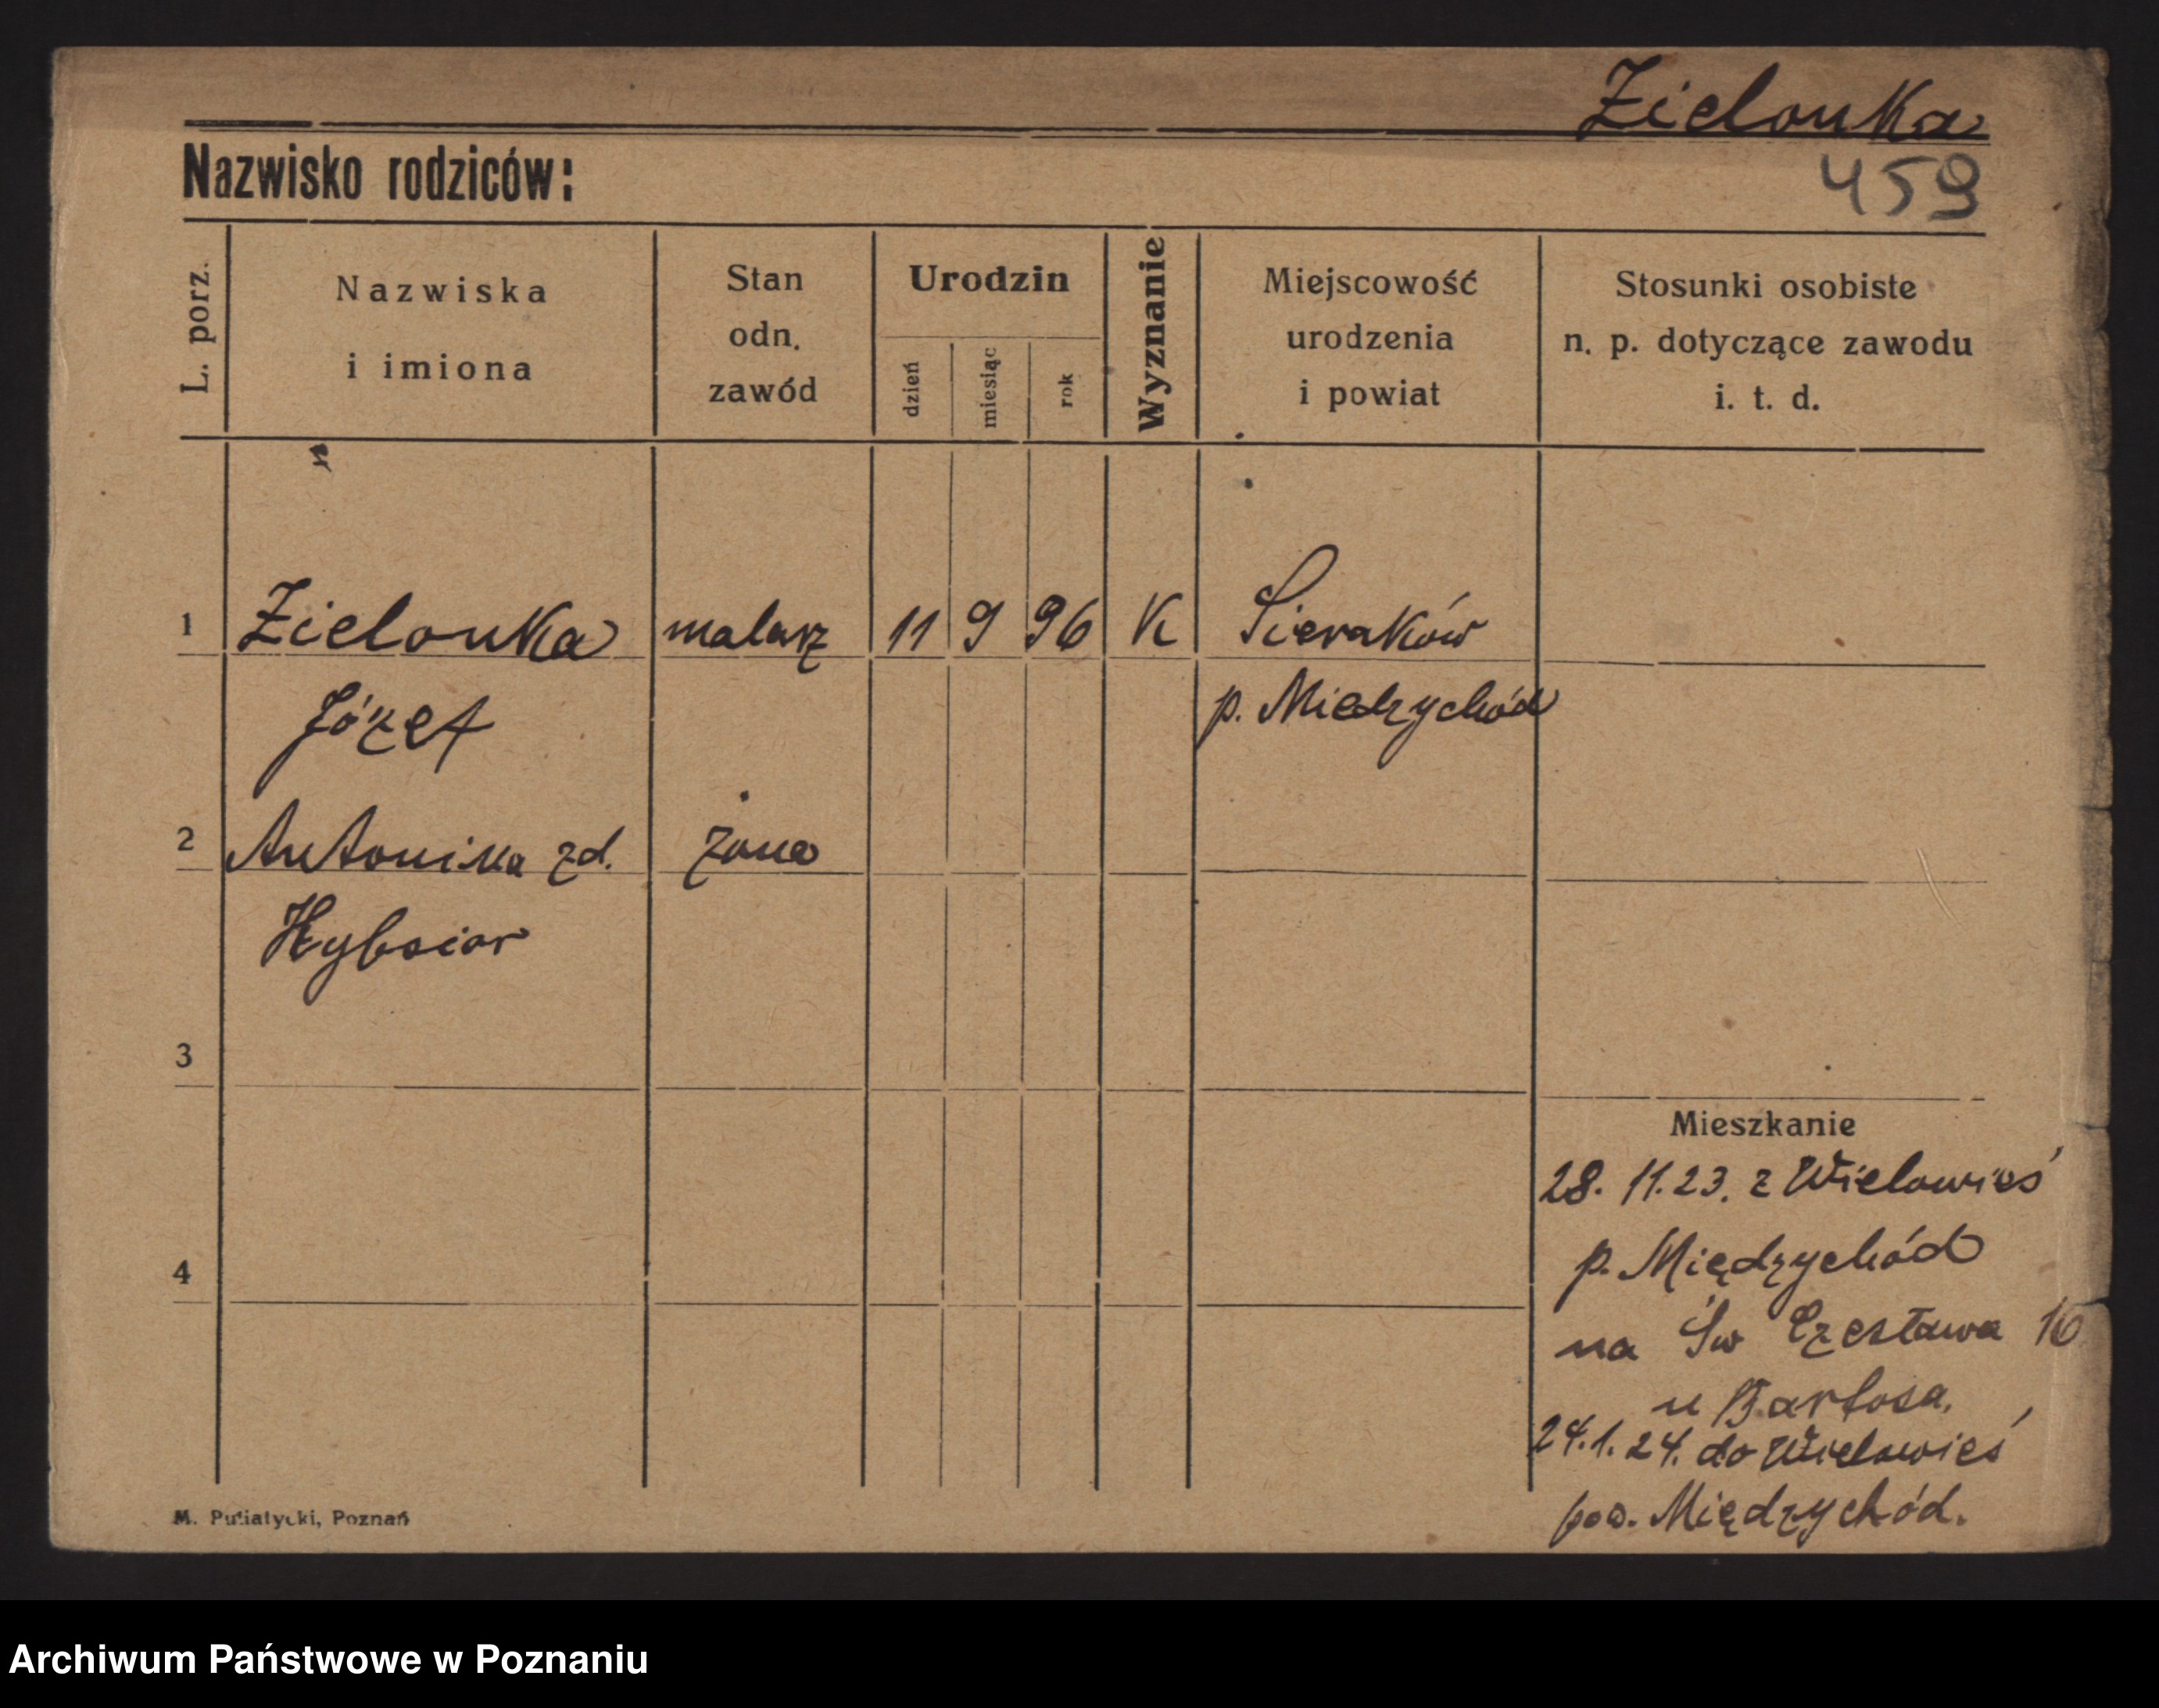 Zielonka
Nazwisko rodziców:
459
L. porz.
Nazwiska
i imiona
Stan
odn.
zawód
Urodzin
dzień
miesiąc
rok
Wyznanie
Miejscowość
urodzenia
i powiat
Stosunki osobiste
n. p. dotyczące zawodu
i. t. d.
1 Zielonka malarz 11 9 96 K Sieraków
Józef p. Miedzychód
2 Antonina zd. żona
3
Mieszkanie
28. 11. 23. z Wielowieś
p. Międzychód
4
na Św Czesława 16
u Bartosa,
24. 1. 24. do Wielowieś
pow. Międzychód.
M. Putiatycki, Poznań
Archiwum Państwowe w Poznaniu